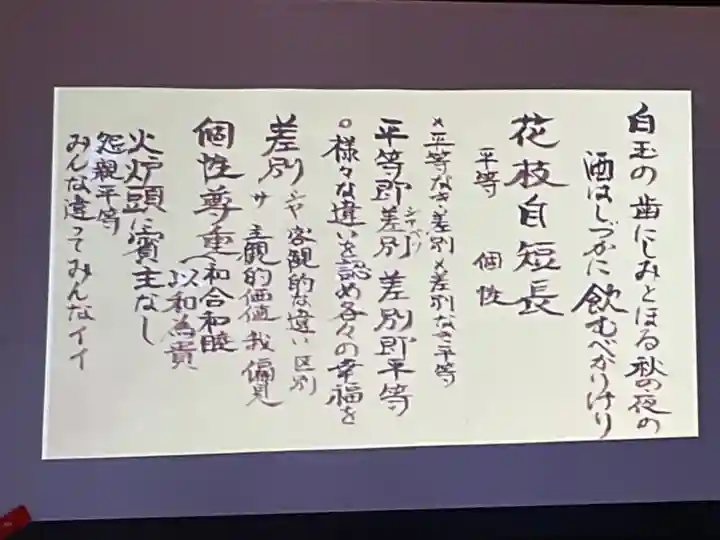 白玉の歯にしみとほる秋の夜の
酒はしづかに飲むべかりけり
花枝自短長
平等 個性
×平等なき差別×差別なき平等
平等即差別 差別即平等
シャベツ
○様々な違いを認め各々の幸福を
差別 シャ 客観的な違い 区別
サ 主観的価値 我 偏見
個性尊重 和合和睦
以和為貴
火炉頭に賓主なし
怨親平等
みんな違ってみんなイイ